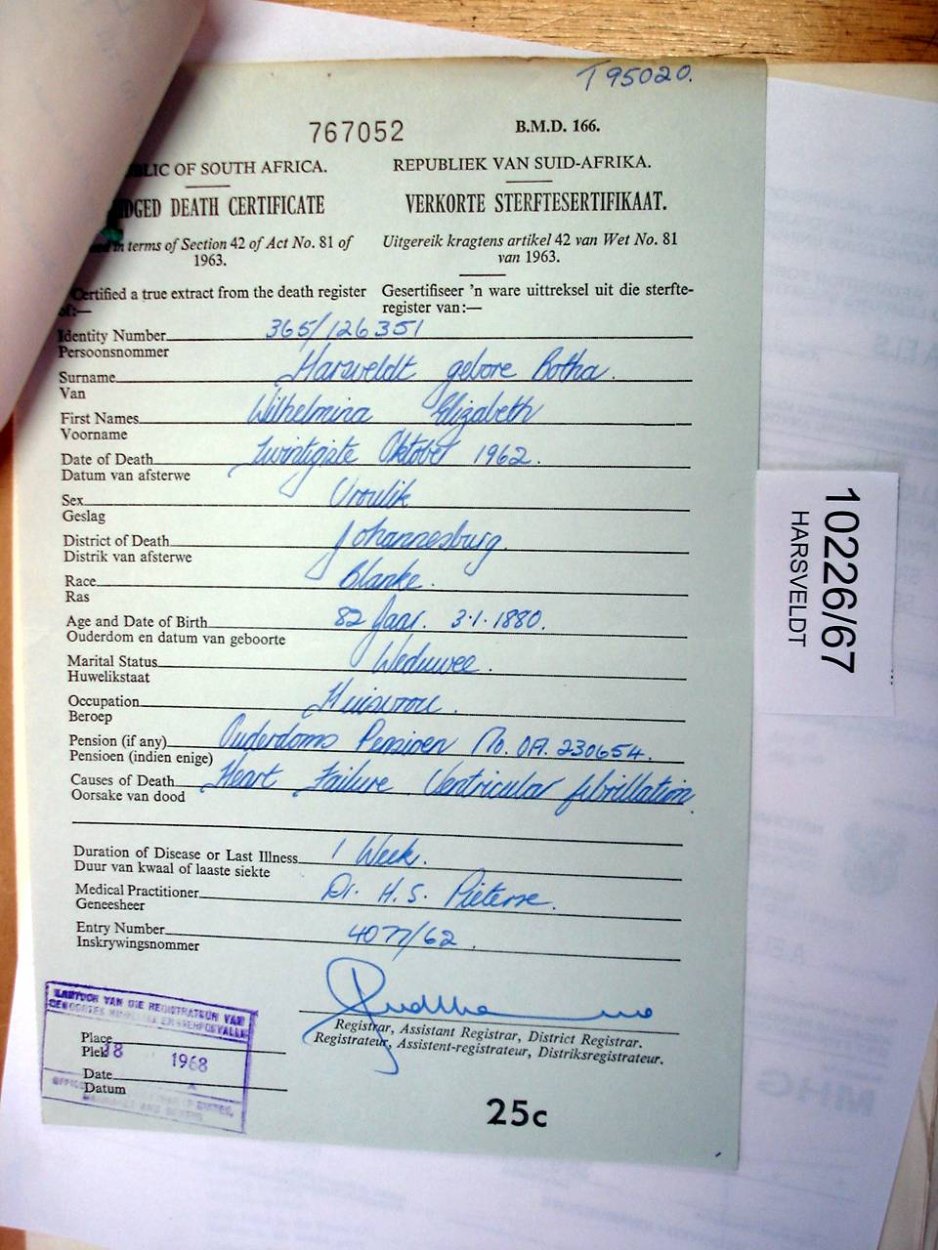 T95020.
767052
B.M.D. 166.
LIC OF SOUTH AFRICA.
REPUBLIEK VAN SUID-AFRIKA.
DGED DEATH CERTIFICATE
VERKORTE STERFTESERTIFIKAAT.
in terms of Section 42 of Act No. 81 of
1963.
Uitgereik kragtens artikel 42 van Wet No. 81
van 1963.
Certified a true extract from the death register
of:—
Gesertifiseer 'n ware uittreksel uit die sterfte-
register van:—
Identity Number 365/126351
Persoonsnommer
Surname Harsveldt gebore Botha.
Van
First Names Wilhelmina Elizabeth
Voorname
Date of Death Twintigste Oktober 1962.
Datum van afsterwe
Sex Vroulik
Geslag
District of Death Johannesburg.
Distrik van afsterwe
Race Blanke.
Ras
Age and Date of Birth 82 Jaar. 3.1.1880.
Ouderdom en datum van geboorte
Marital Status Weduwee.
Huwelikstaat
Occupation Huisvrou.
Beroep
Pension (if any) Ouderdoms Pensioen No. OA. 230654.
Pensioen (indien enige)
Causes of Death Heart Failure Ventricular fibrillation
Oorsake van dood
Duration of Disease or Last Illness 1 Week.
Duur van kwaal of laaste siekte
Medical Practitioner Dr. H. S. Pieterse.
Geneesheer
Entry Number 4077/62.
Inskrywingsnommer
Registrar, Assistant Registrar, District Registrar.
Registrateur, Assistent-registrateur, Distriksregistrateur.
KANTOOR VAN DIE REGISTRATEUR VAN
GEBOORTES HUWELIKE EN STERFGEVALLE
Place
Plek 18 1968
Date
Datum
25c
10226/67
HARSVELDT